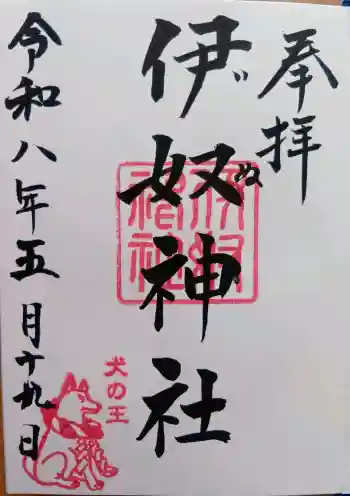 奉拝
伊奴神社
ぬ
伊奴神社
令和八年五月十九日
犬の王